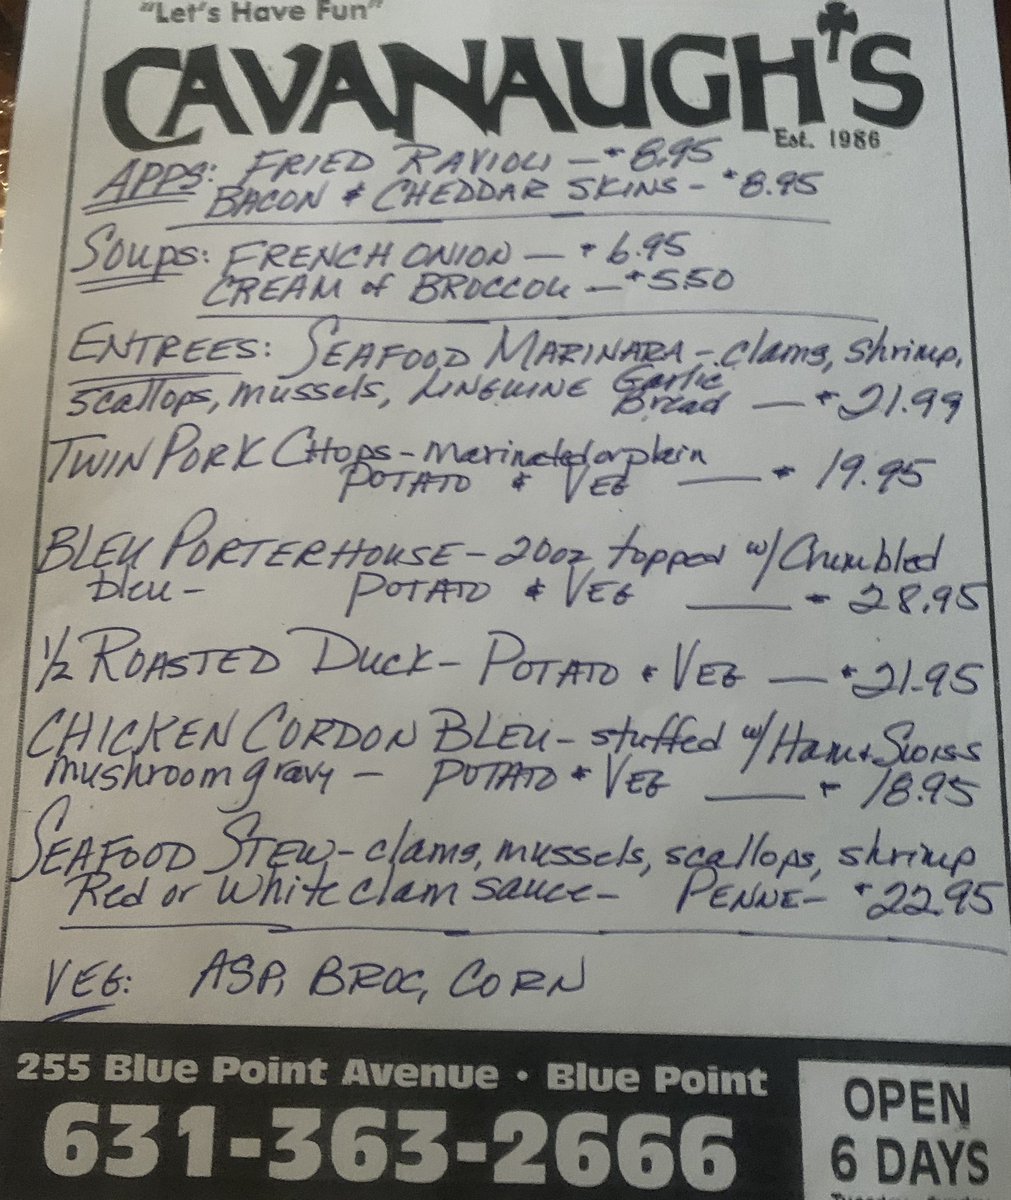 "Let's Have Fun"
CAVANAUGH'S
Est. 1986
APPS: FRIED RAVIOLI — $8.95
BACON & CHEDDAR SKINS - $8.95
SOUPS: FRENCH ONION — $6.95
CREAM of BROCCOLI — $5.50
ENTREES: SEAFOOD MARINARA - clams, shrimp,
scallops, mussels, LINGUINE Garlic
Bread — $21.99
TWIN PORK CHOPS - marinated or plain
POTATO & VEG — $19.95
BLEU PORTERHOUSE - 20oz topped w/ Crumbled
bleu - POTATO & VEG — $28.95
1/2 ROASTED DUCK - POTATO & VEG — $21.95
CHICKEN CORDON BLEU - stuffed w/ Ham & Swiss
mushroom gravy - POTATO & VEG — $18.95
SEAFOOD STEW - clams, mussels, scallops, shrimp
Red or White clam sauce - PENNE - $22.95
VEG: ASP, BROC, CORN
255 Blue Point Avenue • Blue Point
631-363-2666
OPEN
6 DAYS